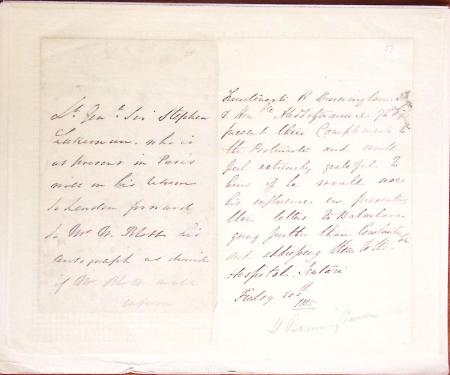 Lt. Genl. Sir Stephen
Lakeman, who is
at present in Paris
will on his return
to London forward
to Mr. W. Blott his
autograph as desired
if Mr. Blott will
inform
57
Lieutenants
& Honble
present their Compliments to
the Postmaster and would
feel extremely grateful to
him if he would use
his influence in preventing
their letters to Balaclava
going further than Constantinople
and addressing them to the
Hospital. Scutari
Friday 20th
1855